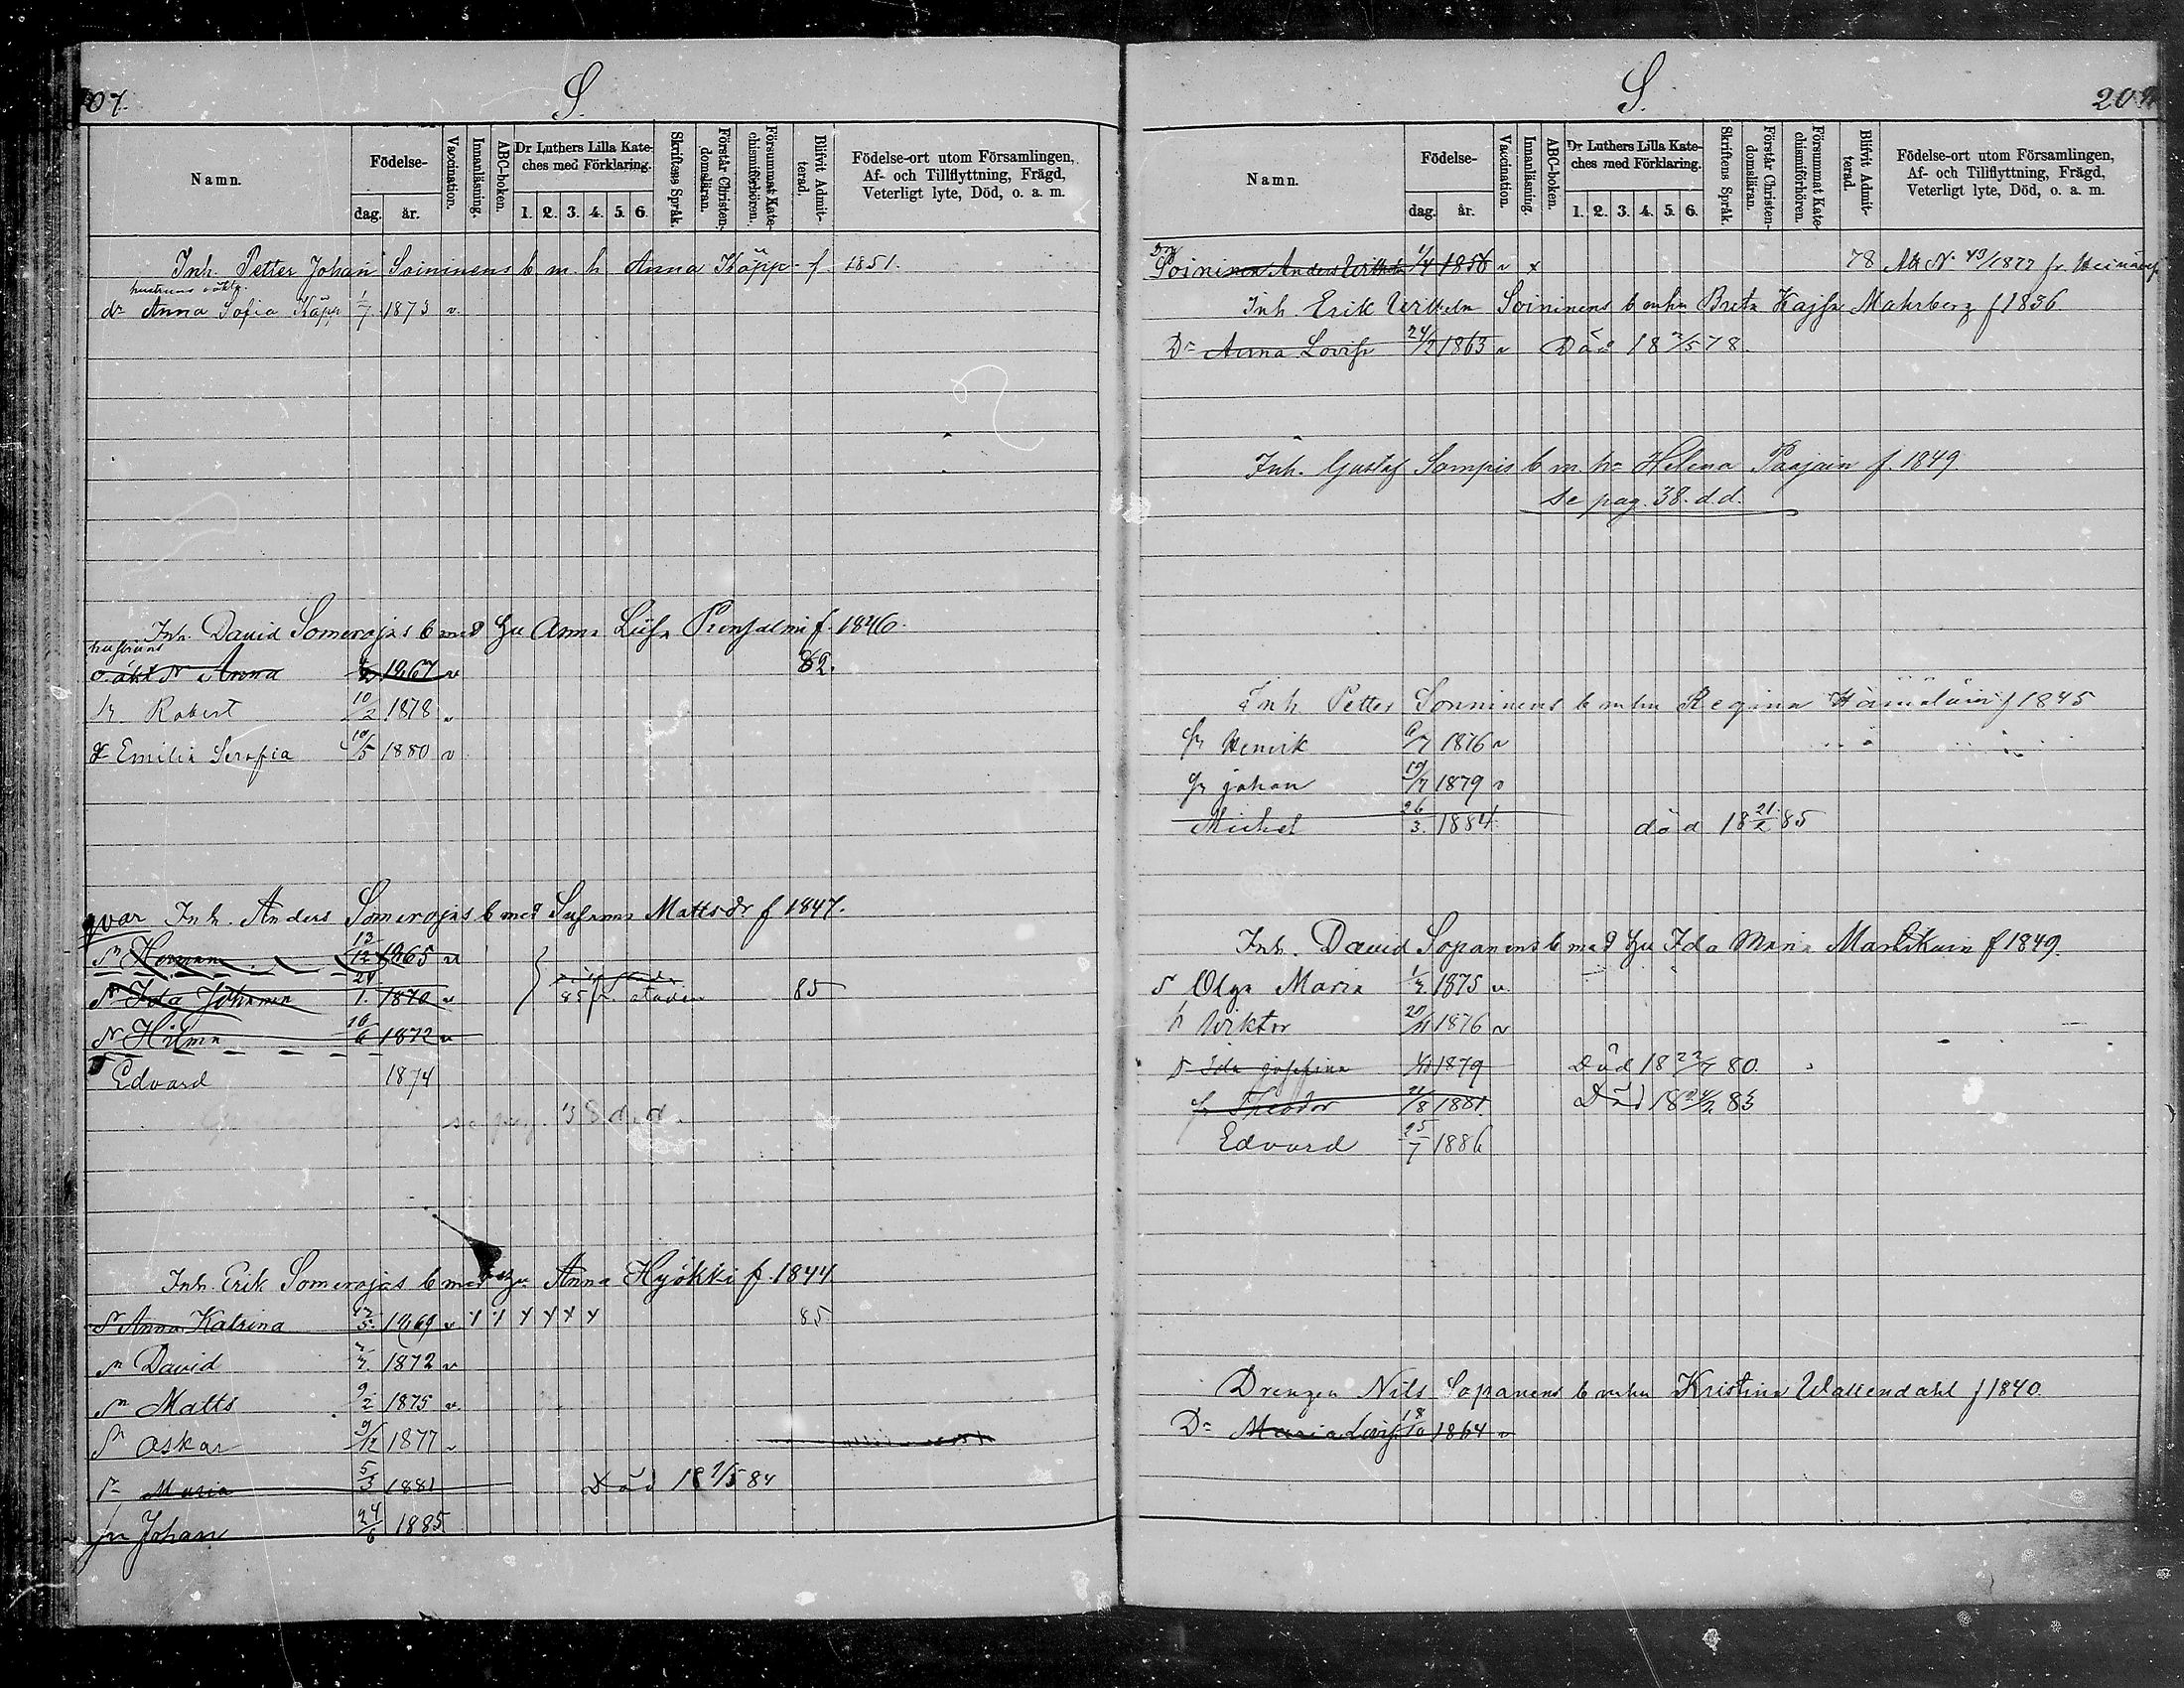 07.
S.
Namn.
Födelse-
dag.
år.
Vaccination.
Innanläsning.
ABC-boken.
Dr Luthers Lilla Kate-
ches med Förklaring.
1. 2. 3. 4. 5. 6.
Skriftens Språk.
Förstår Christen-
domsläran.
Försummat Kate-
chismiförhören.
Blifvit Admit-
terad.
Födelse-ort utom Församlingen,
Af- och Tillflyttning, Frägd,
Veterligt lyte, Död, o. a. m.
Inh. Petter Johan Soininens b m. h Anna Käpp f. 1851.
hustruns oäkta
dr Anna Sofia Käpp 1/7 1873 v.
Inh. David Somerojas b med Hu Anna Liisa f. 1846.
hustruns
oäkt dr Anna 1867 v 82.
Robert 10/2 1878 v
Emilia Serafia 10/5 1880 v
qvar Inh. Anders Somerojas b med Susanna Mattsdr f 1847.
Herman 13/12 1865 v
Ida Johanna 24/1. 1870 v 85
Hilma 16/6 1872 v
Edvard 1874
se pag. 38 d.d.
Inh. Erik Somerojas b med Hu Anna Hyökki f. 1844
Anna Katrina 12/5 1869 v 85
David 1872 v
Matts 9/2 1875 v.
Oskar 9/12 1877 v
Maria 5/3 1881 Död 18 7/5 84
Johan 24/6 1885
S.
Namn.
Födelse-
dag.
år.
Vaccination.
Innanläsning.
ABC-boken.
Dr Luthers Lilla Kate-
ches med Förklaring.
1. 2. 3. 4. 5. 6.
Skriftens Språk.
Förstår Christen-
domsläran.
Försummat Kate-
chismiförhören.
Blifvit Admit-
terad.
Födelse-ort utom Församlingen,
Af- och Tillflyttning, Frägd,
Veterligt lyte, Död, o. a. m.
Soininen Anders Wilhelm 1/4 1856 v x 78 Att N. 43/1877 fr.
Inh. Erik Wilhelm Soininens b m hu Breta Kajsa Mahrberg f 1836.
Dr Anna Lovisa 24/2 1863 v Död 18 7/5 78.
Inh. Gustaf Sampis b m. hu Helena Paajain f. 1849
se pag. 38. d.d.
Inh Petter Sonninens b m hu Regina Hämäläin f 1845
Henrik 6/7 1876 v
Johan 19/7 1879 v
Mickel 26/3. 1884. död 18 21/2 85
Inh. David Sopanens b med hu Ida Maria Martikain f 1849.
Olga Maria 1875 v
Wiktor 1876 v
Ida Josefina 1879 Död 18 22/7 80.
Theodor 21/8 1881. Död 18 24/2 83
Edvard 25/7 1886
Drengen Nils Sopanens b m hu Kristina Wallendahl f 1840.
Dr Maria Lovisa 18/10 1864 v